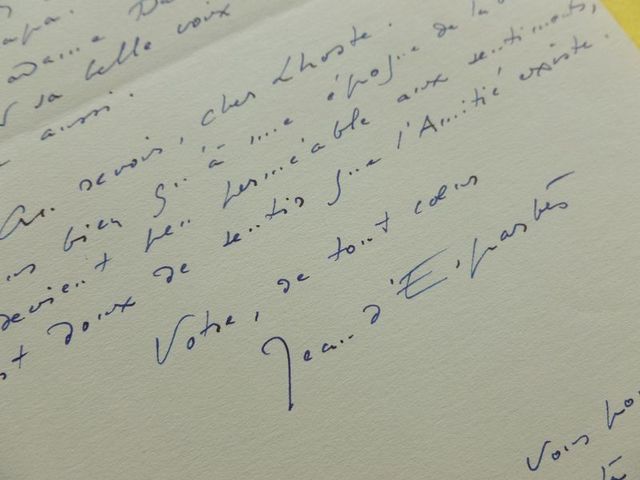 sa belle voix
aussi.
Au revoir, cher Lhoste.
bien qu'à une époque de la
devient peu perméable aux sentiments,
doux de sentir que l'Amitié existe.
Votre, de tout cœur
Jean d'Esparbès
Vous